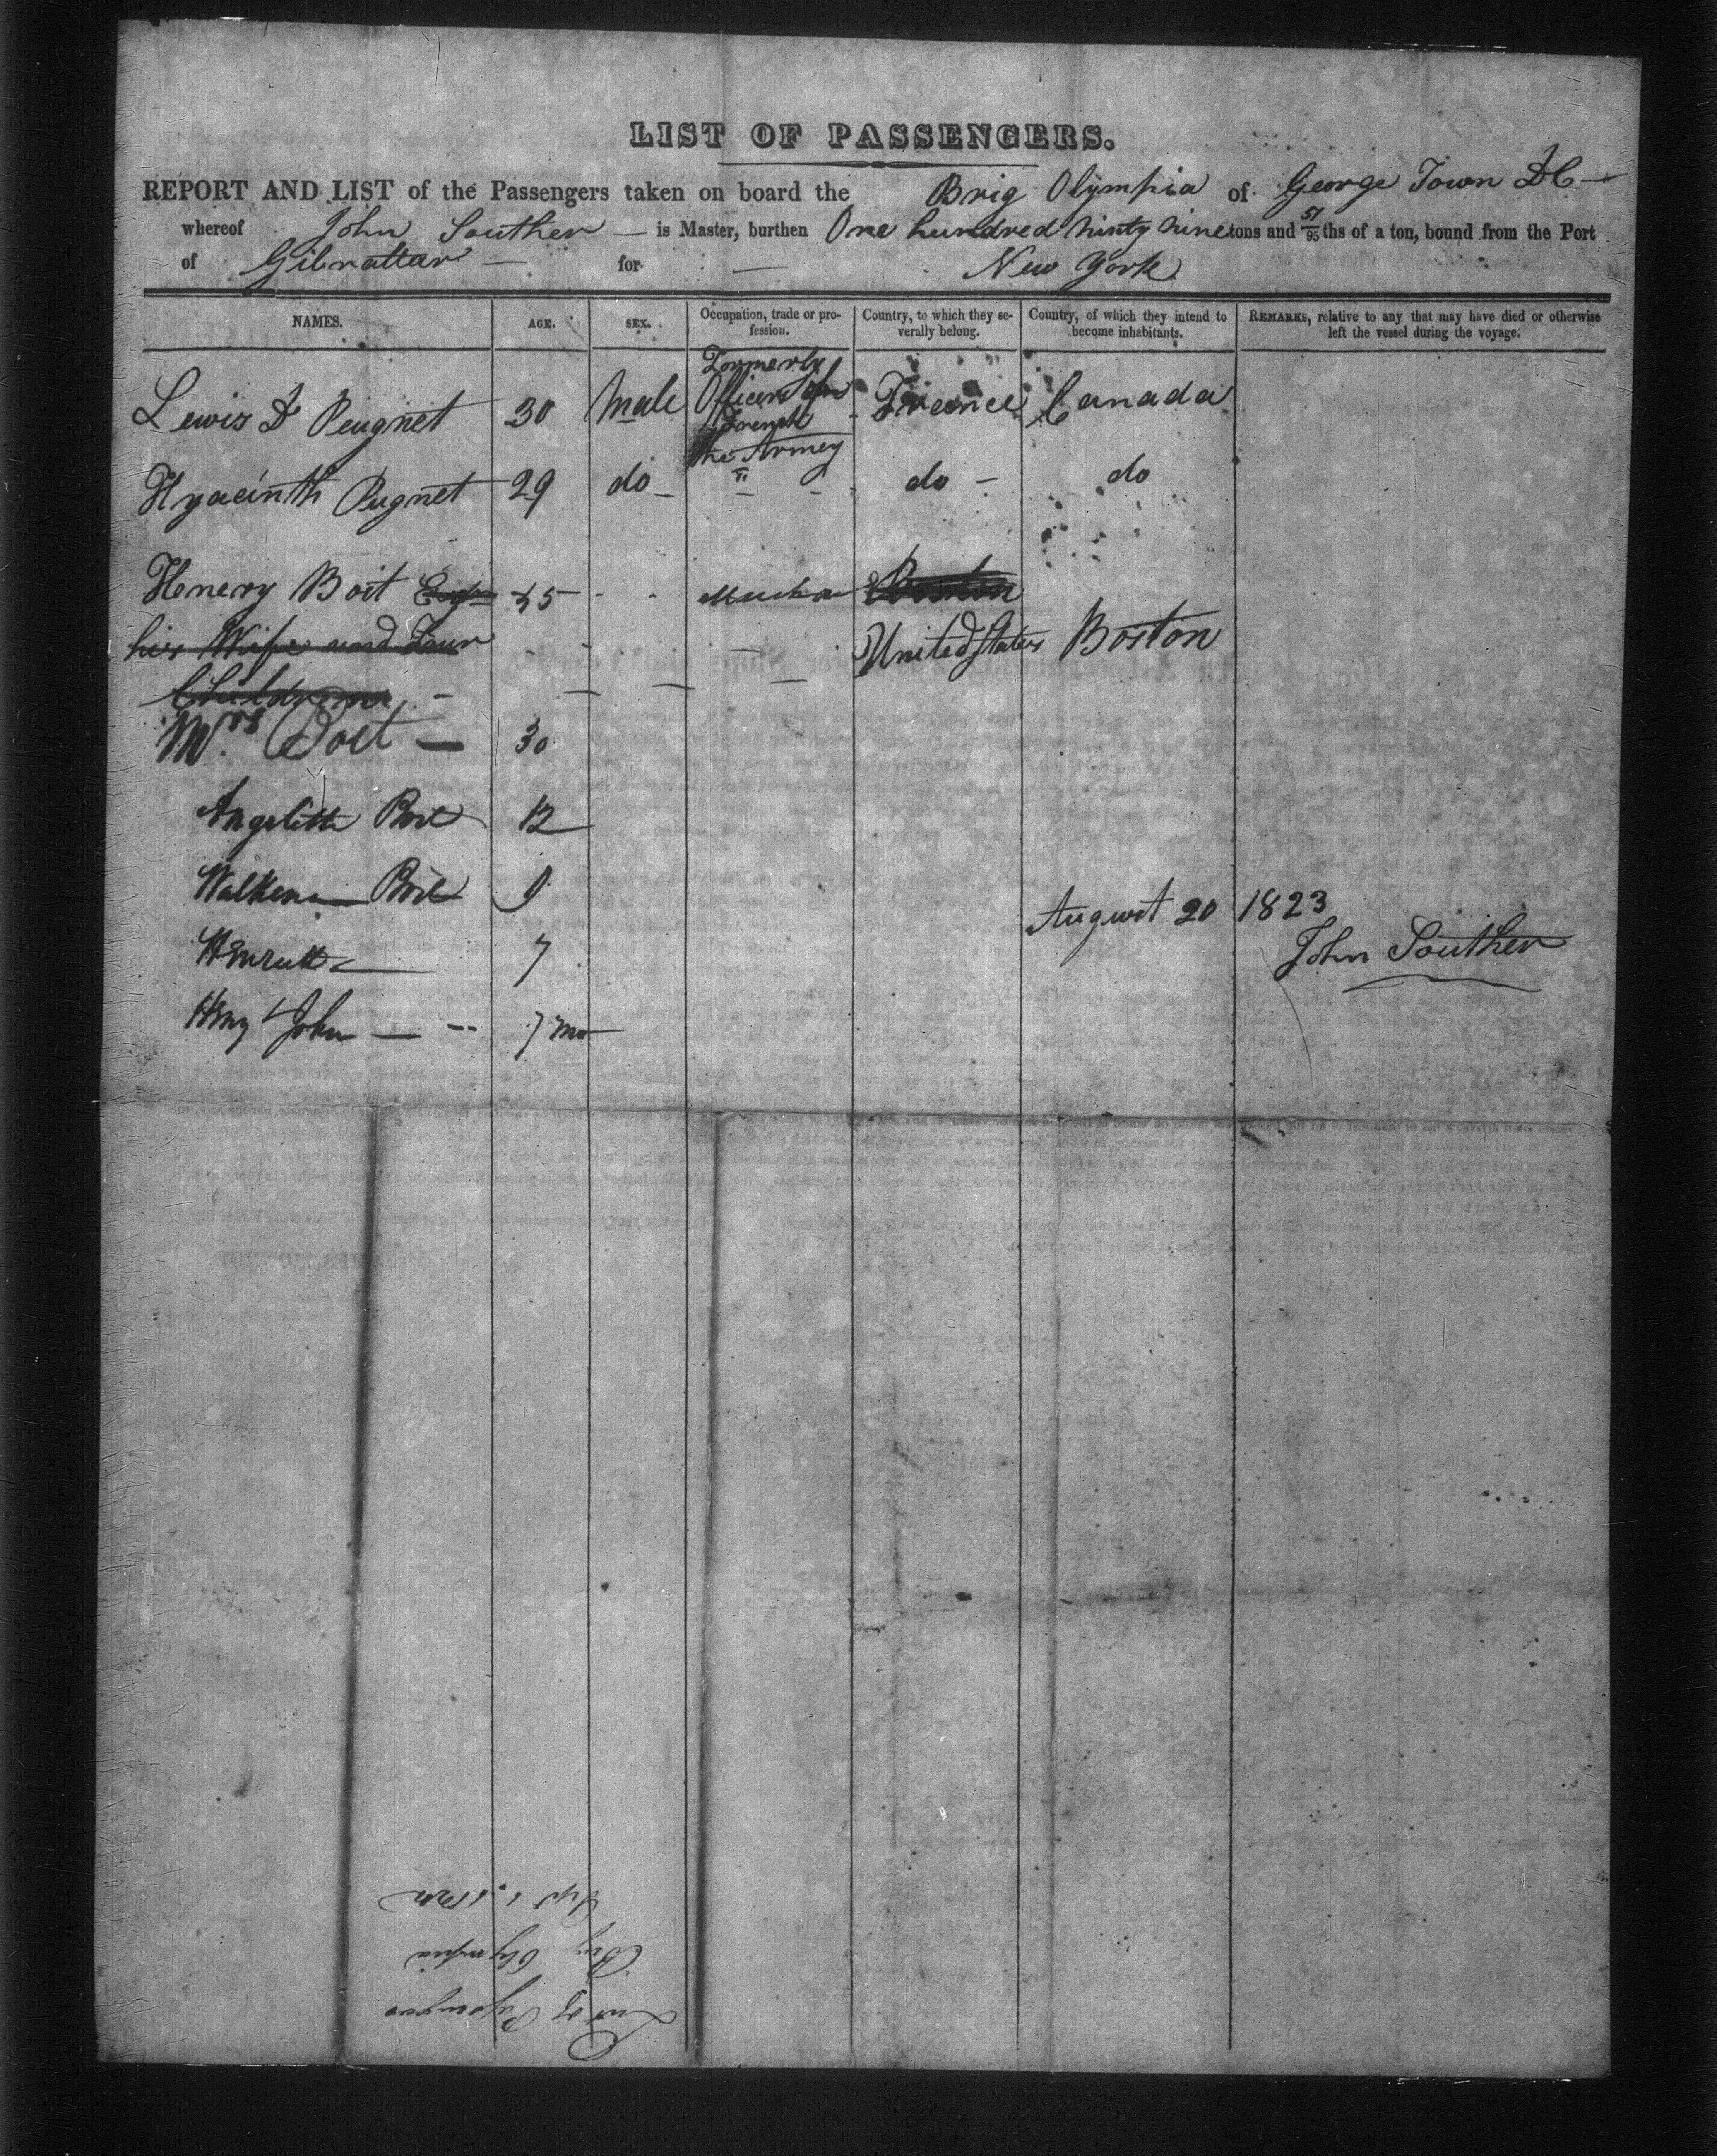 LIST OF PASSENGERS.
REPORT AND LIST of the Passengers taken on board the Brig Olympia of George Town DC
whereof John Souther is Master, burthen One hundred Ninty Nine tons and 51/95 ths of a ton, bound from the Port
of Gibraltar for New York
NAMES. AGE. SEX. Occupation, trade or profession. Country, to which they severally belong. Country, of which they intend to become inhabitants. REMARKS, relative to any that may have died or otherwise left the vessel during the voyage.
Lewis D Peugnet 30 Male Formerly Officers of French the Armey France Canada
Hyacinth Pugnet 29 do " do do
Henery Boit 35 Boston
his Wife and Four United States Boston
Children
Mrs Boit 30
Boit 12
Boit 9
7
August 20 1823
John Souther
Heny John 7 mo
List of Passengers
Brig Olympia
Sept 1.